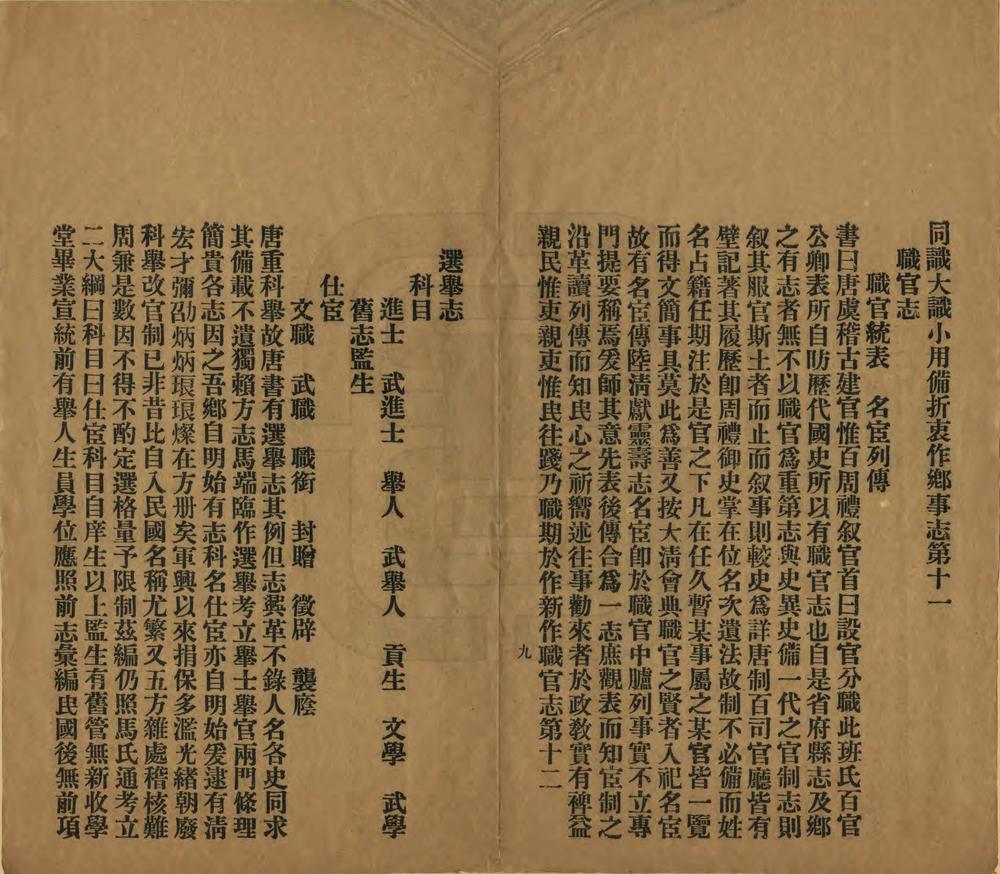 同識大識小用備折衷作鄉事志第十一
職官志
職官統表　名宦列傳
書曰唐虞稽古建官惟百周禮叙官首曰設官分職此班氏百官
公卿表所自昉歷代國史所以有職官志也自是省府縣志及鄉
之有志者無不以職官爲重第志與史異史備一代之官制志則
叙其服官斯土者而止而叙事則較史爲詳唐制百司官廳皆有
壁記著其履歷卽周禮御史掌在位名次遺法故制不必備而姓
名占籍任期注於是官之下凡在任久暫某事屬之某官皆一覽
而得文簡事具莫此爲善又按大淸會典職官之賢者入祀名宦
故有名宦傳陸淸獻靈壽志名宦卽於職官中臚列事實不立專
門提要稱焉爰師其意先表後傳合爲一志庶觀表而知宦制之
沿革讀列傳而知民心之祈嚮述往事勸來者於政敎實有裨益
親民惟吏親吏惟民往踐乃職期於作新作職官志第十二
九
選舉志
科目
進士　武進士　舉人　武舉人　貢生　文學　武學
舊志監生
仕宦
文職　武職　職銜　封贈　徵辟　襲廕
唐重科舉故唐書有選舉志其例但志興革不錄人名各史同求
其備載不遺獨賴方志馬端臨作選舉考立舉士舉官兩門條理
簡貴各志因之吾鄉自明始有志科名仕宦亦自明始爰逮有淸
宏才彌劭炳炳琅琅燦在方册矣軍興以來捐保多濫光緒朝廢
科舉改官制已非昔比自入民國名稱尤繁又五方雜處稽核難
周兼是數因不得不酌定選格量予限制茲編仍照馬氏通考立
二大綱曰科目曰仕宦科目自庠生以上監生有舊管無新收學
堂畢業宣統前有舉人生員學位應照前志彙編民國後無前項